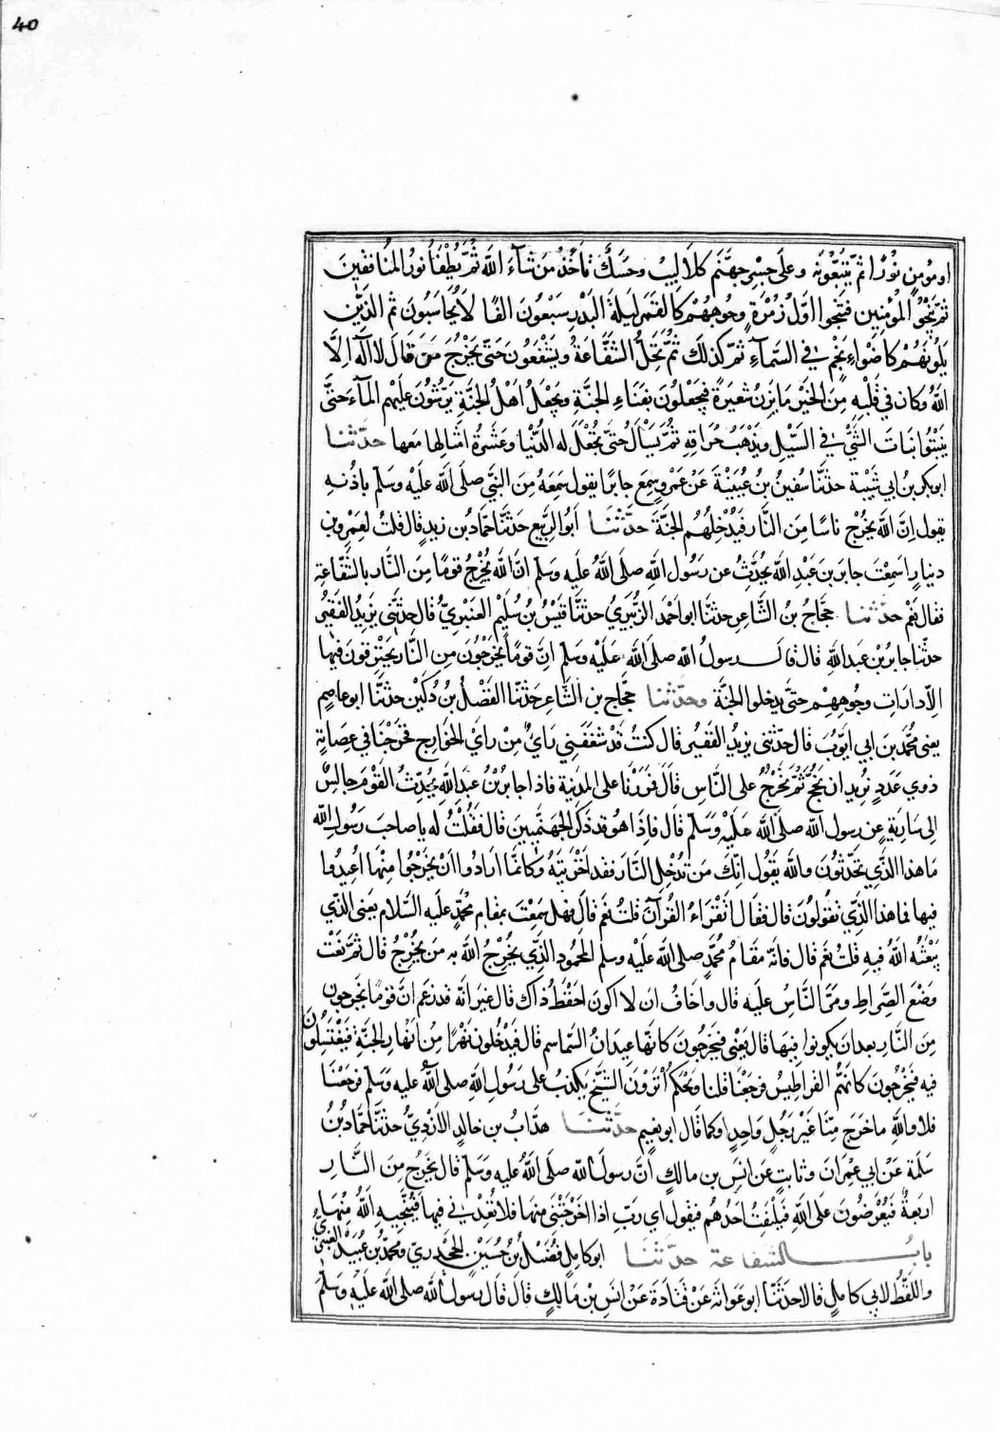 40
او مؤمن نورا ثم يتبعونه وعلى جسر جهنم كلاليب وحسك تأخذ من شآء الله ثم يطفأ نور المنافقين
ثم ينجو المؤمنين فتنجوا اول زمرة وجوههم كالقمر ليلة البدر سبعون الفا لا يحاسبون ثم الذين
يلونهم كاضواء نجم في السمآء ثم كذلك ثم تحل الشفاعة ويشفعون حتى يخرج من قال لا اله الا
الله وكان في قلبه من الخير ما يزن شعيرة فيجعلون بفناء الجنة ويجعل اهل الجنة يرشون عليهم المآء حتى
ينبتوا نبات الشئ في السيل ويذهب حراقه ثم يسأل حتى تجعل له الدنيا وعشرة امثالها معها حدثنا
ابو بكر بن ابي شيبة حدثنا سفين بن عيينة عن عمرو سمع جابرا يقول سمعه من النبي صلى الله عليه وسلم باذنه
يقول ان الله يخرج ناسا من النار فيدخلهم الجنة حدثنا ابو الربيع حدثنا حماد بن زيد قال قلت لعمرو بن
دينار اسمعت جابر بن عبد الله يحدث عن رسول الله صلى الله عليه وسلم ان الله يخرج قوما من النار بالشفاعة
فقال نعم حدثنا حجاج بن الشاعر حدثنا ابو احمد الزبيري حدثنا قيس بن سليم العنبري قال حدثني يزيد الفقير
حدثنا جابر بن عبد الله قال قال رسول الله صلى الله عليه وسلم ان قوما يخرجون من النار يحترقون فيها
الا دارات وجوههم حتى يدخلوا الجنة وحدثنا حجاج بن الشاعر حدثنا الفضل بن دكين حدثنا ابو عاصم
يعني محمد بن ابي ايوب قال حدثني يزيد الفقير قال كنت قد شغفني راي من راي الخوارج فخرجنا في عصابة
ذوي عدد نريد ان نحج ثم نخرج على الناس قال فمررنا على المدينة فاذا جابر بن عبد الله يحدث القوم جالس
الى سارية عن رسول الله صلى الله عليه وسلم قال فاذا هو قد ذكر الجهنميين قال فقلت له يا صاحب رسول الله
ما هذا الذي تحدثون والله يقول انك من تدخل النار فقد اخزيته وكلما ارادوا ان يخرجوا منها اعيدوا
فيها فما هذا الذي تقولون قال فقال اتقراء القرآن قلت نعم قال فهل سمعت بمقام محمد عليه السلام يعني الذي
يبعثه الله فيه قلت نعم قال فانه مقام محمد صلى الله عليه وسلم المحمود الذي يخرج الله به من يخرج قال ثم نعت
وضع الصراط ومر الناس عليه قال واخاف ان لا اكون احفظ ذاك قال غير انه قد زعم ان قوما يخرجون
من النار بعد ان يكونوا فيها قال يعني فيخرجون كانها عيدان السماسم قال فيدخلون نهرا من انهار الجنة فيغتسلون
فيه فيخرجون كانهم القراطيس فرجعنا قلنا ويحكم اترون الشيخ يكذب على رسول الله صلى الله عليه وسلم فرجعنا
فلا والله ما خرج منا غير رجل واحد او كما قال ابو نعيم حدثنا هداب بن خالد الازدي حدثنا حماد بن
سلمة عن ابي عمران وثابت عن انس بن مالك ان رسول الله صلى الله عليه وسلم قال يخرج من النار
اربعة فيعرضون على الله فيلتفت احدهم فيقول اي رب اذا اخرجتني منها فلا تعدني فيها فينجيه الله منها
باب الشفاعة حدثنا ابو كامل فضيل بن حسين الجحدري ومحمد بن عبيد الغبري
واللفظ لابي كامل قالا حدثنا ابو عوانة عن قتادة عن انس بن مالك قال قال رسول الله صلى الله عليه وسلم